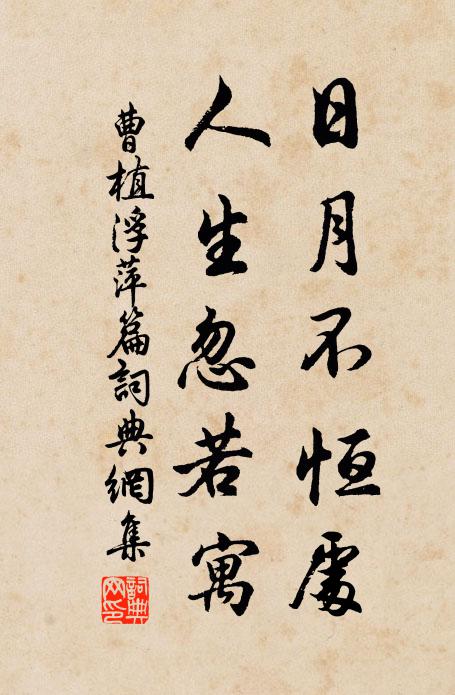 日月不恒處
人生忽若寓
曹植浮萍篇詞典網集
詞典網印